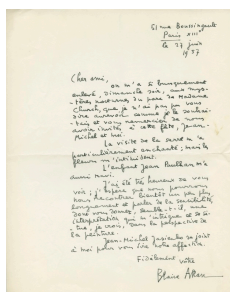 51 rue Boussingault
Paris XIIIe
le 27 juin
1957
Cher ami,
on m'a si brusquement
enlevé, dimanche soir, aux mys-
tères nocturnes du parc de Madame
Church, que je n'ai pas pu vous
dire au revoir comme je le souhai-
tais et vous remercier de nous
avoir invités à cette fête, Jean-
Michel et moi.
La visite de la serre m'a
particulièrement enchanté, mais les
fleurs m'intimident.
L'enfant Jean Paulhan m'a
aussi ravi.
J'ai été très heureux de vous
voir; j'espère que nous pourrons
nous rencontrer bientôt un peu plus
longuement et parler de la sensibilité
dont vous donnez, semble-t-il, une
interprétation qui m'intrigue et se si-
tue, je crois, dans la perspective de
la peinture.
Jean-Michel se joint à
moi pour vous dire notre affection.
Fidèlement
vôtre